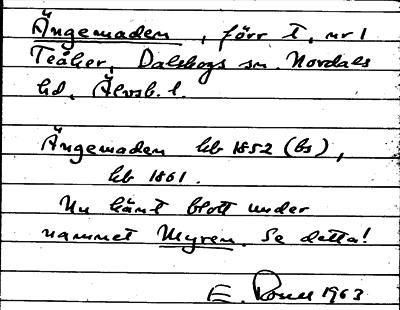 Ängemaden, förr t. nr 1
Teåker, Dalskogs sn. Nordals
hd, Älvsb. l.
Ängemaden hb 1852 (bs),
hb 1861.
Nu känt blott under
namnet Myren. Se detta!
E. 1963